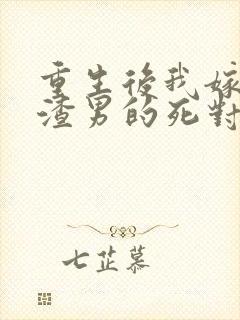 重生後我嫁
渣男的死對
七芷慕